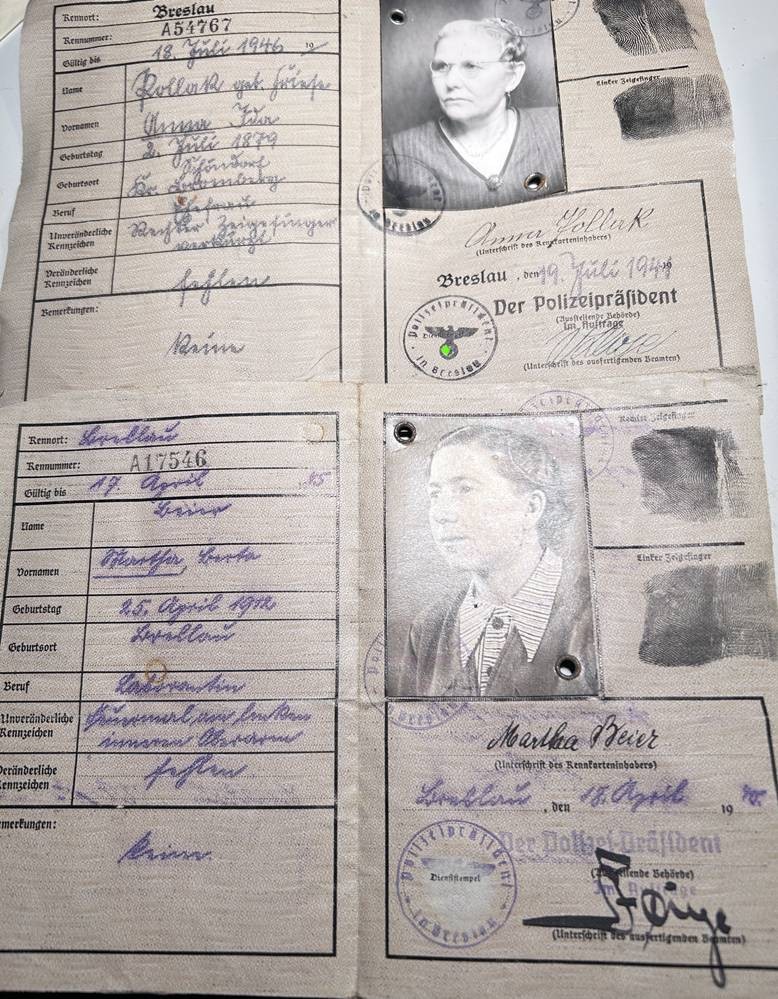 Kennort: Breslau
Kennnummer: A54767
Gültig bis 18. Juli 1946 19
Name Pollak geb. Friese
Vornamen Anna Ida
Geburtstag 2. Juli 1879
Geburtsort Schöndorf
Kr.
Beruf Ehefrau
Unveränderliche Kennzeichen Rechter Zeigefinger
verkürzt
Veränderliche Kennzeichen fehlen
Bemerkungen:
Keine
Linker Zeigefinger
Polizeipräsident in Breslau
Anna Pollak
(Unterschrift des Kennkarteninhabers)
Breslau, den 19. Juli 1941 19
Der Polizeipräsident
(Ausstellende Behörde)
Im Auftrage
(Unterschrift des ausfertigenden Beamten)
Polizeipräsident in Breslau
Kennort: Breslau
Kennnummer: A17546
Gültig bis 17. April 45
Name Beier
Vornamen Martha, Berta
Geburtstag 25. April 1912
Geburtsort Breslau
Beruf Laborantin
Unveränderliche Kennzeichen Feuermal am linken
inneren Oberarm
Veränderliche Kennzeichen fehlen
Bemerkungen:
Keine
Rechter Zeigefinger
Linker Zeigefinger
Martha Beier
(Unterschrift des Kennkarteninhabers)
Breslau, den 18. April 19 40.
Der Polizei-Präsident
(Ausstellende Behörde)
Im Auftrage
Polizeipräsident in Breslau
Dienststempel
(Unterschrift des ausfertigenden Beamten)